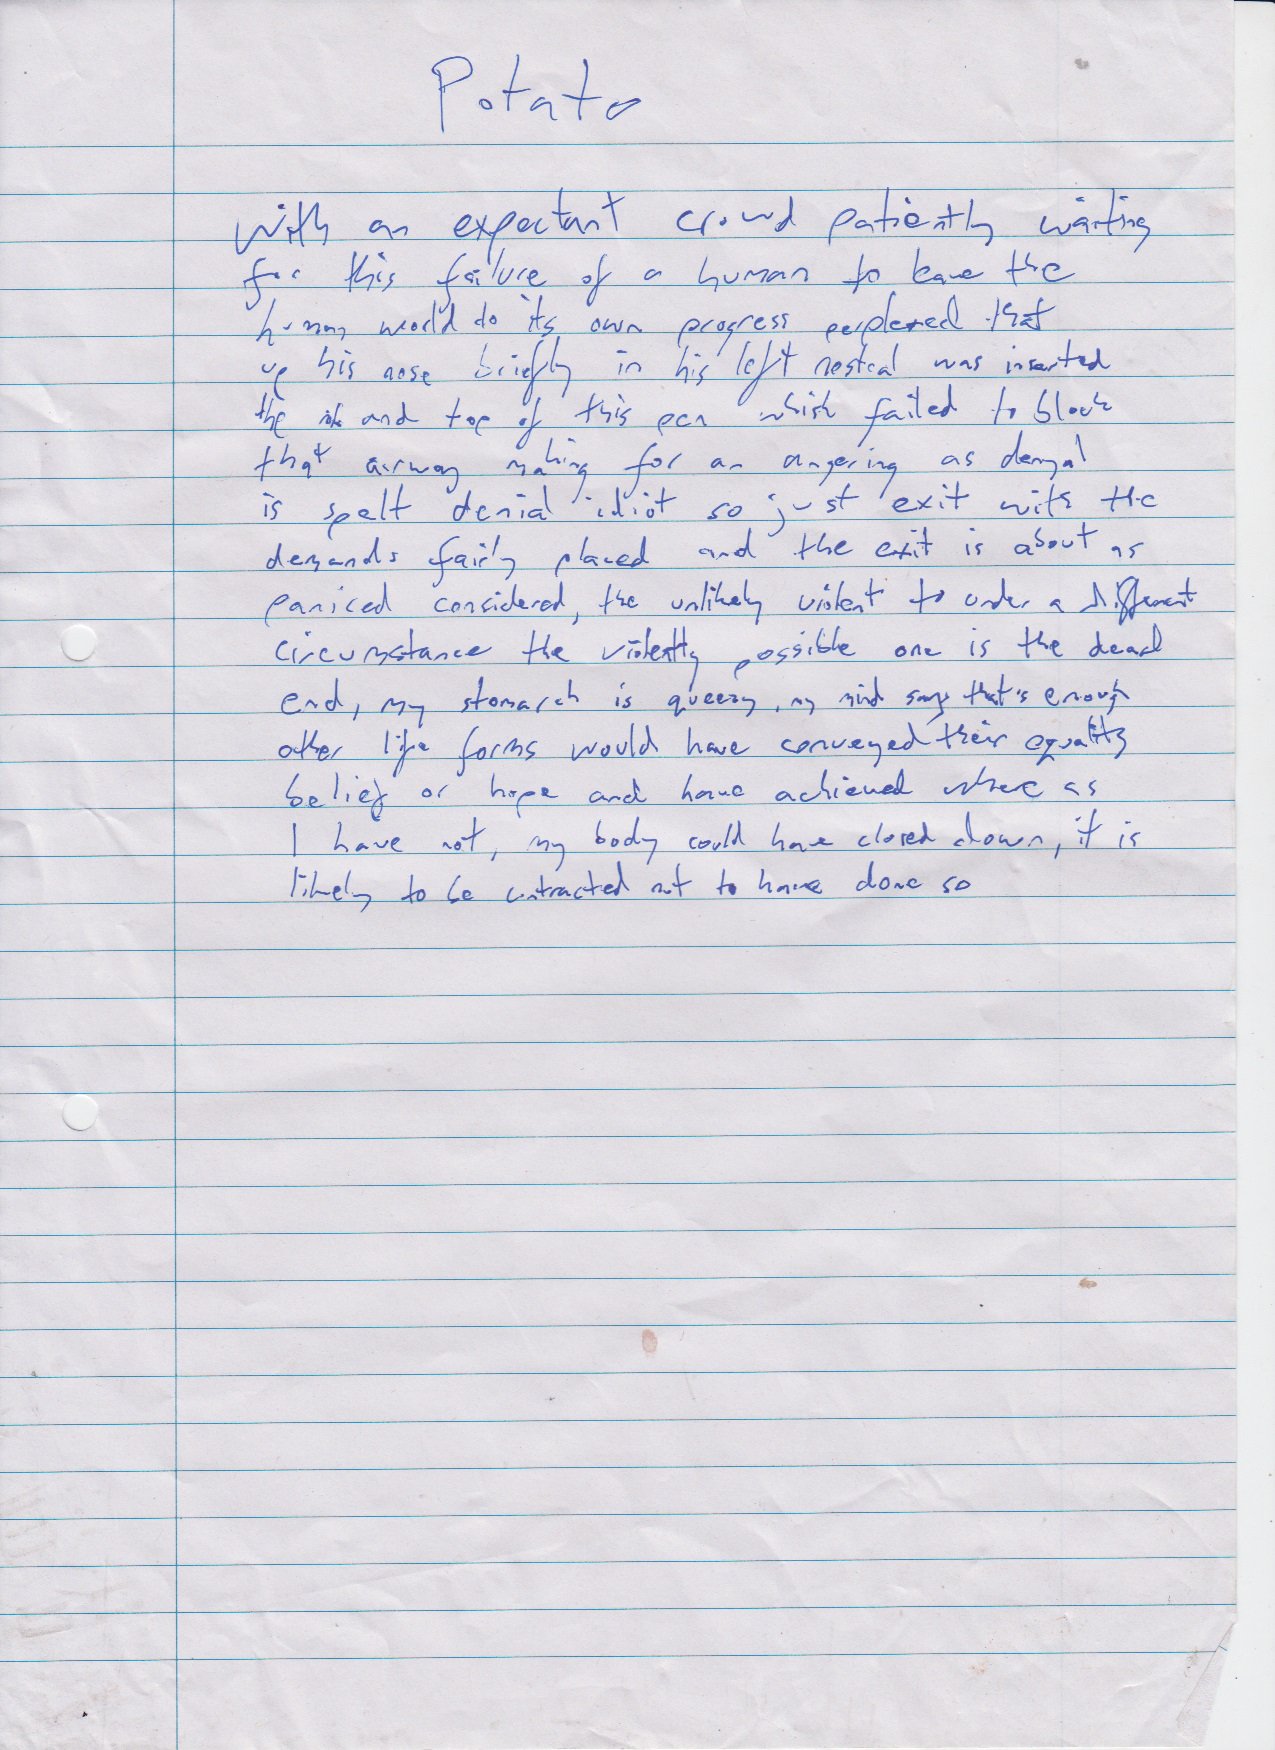 Potato
With an expectant crowd patiently waiting
for this failure of a human to leave the
human world to its own progress perplexed that
up his nose briefly in his left nostral was inserted
the and top of this pen which failed to block
that airway making for an angering as denyal
is spelt denial idiot so just exit with the
demands fairly placed and the exit is about as
paniced considered, the unlikely violent to under a different
circumstance the violently possible one is the dead
end, my stomach is queezy, my mind says that's enough
other life forms would have conveyed their equality
belief or hope and have achieved where as
I have not, my body could have closed down, it is
likely to be not to have done so